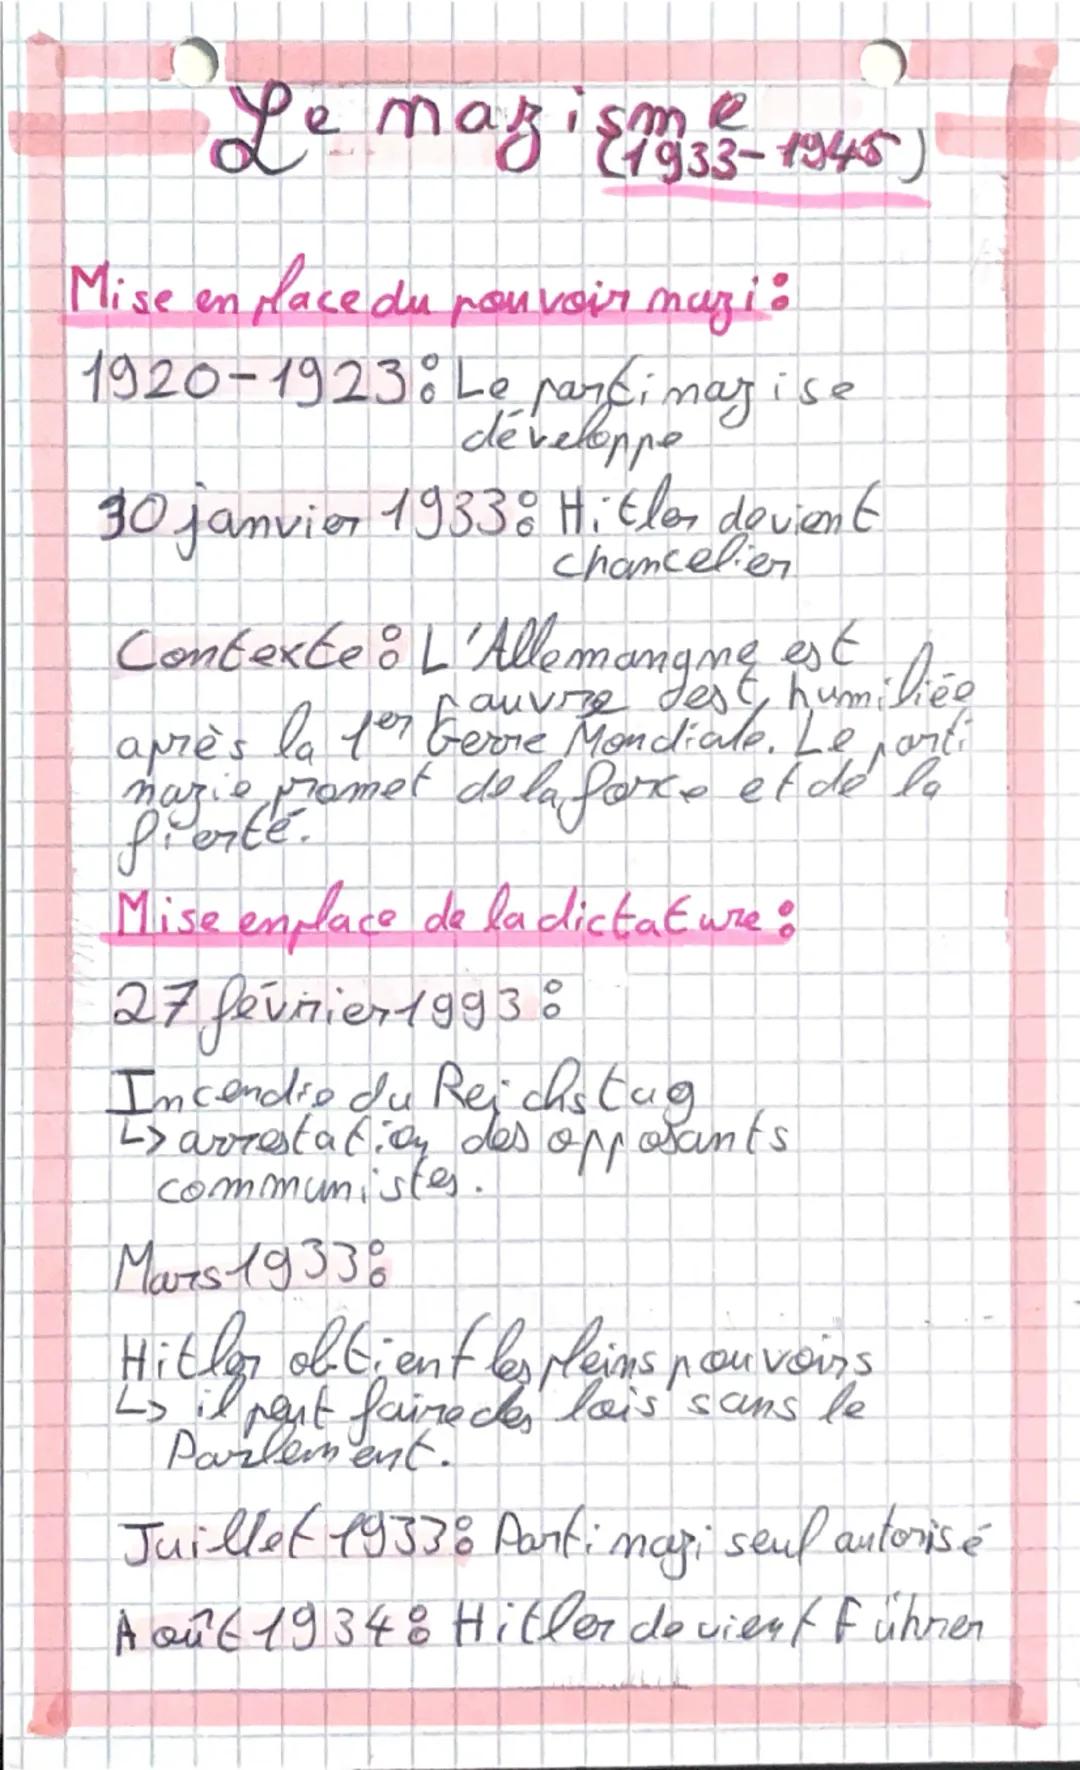 Le nazisme
(1933-1945)
Mise en place du pouvoir nazi :
1920-1923 : Le parti nazi se
développe
30 janvier 1933 : Hitler devient
chancelier
Contexte : L'Allemangne est
pauvre est humiliée
après la 1er Gerre Mondiale. Le parti
nazie promet de la force et de la
fierté.
Mise en place de la dictature :
27 février 1993 :
Incendie du Reichstag
↳ arrestation des opposants
communistes.
Mars 1933 :
Hitler obtient les pleins pouvoirs
↳ il peut faire des lois sans le
Parlement.
Juillet 1933 : Parti nazi seul autorisé
Août 1934 : Hitler devient Führer